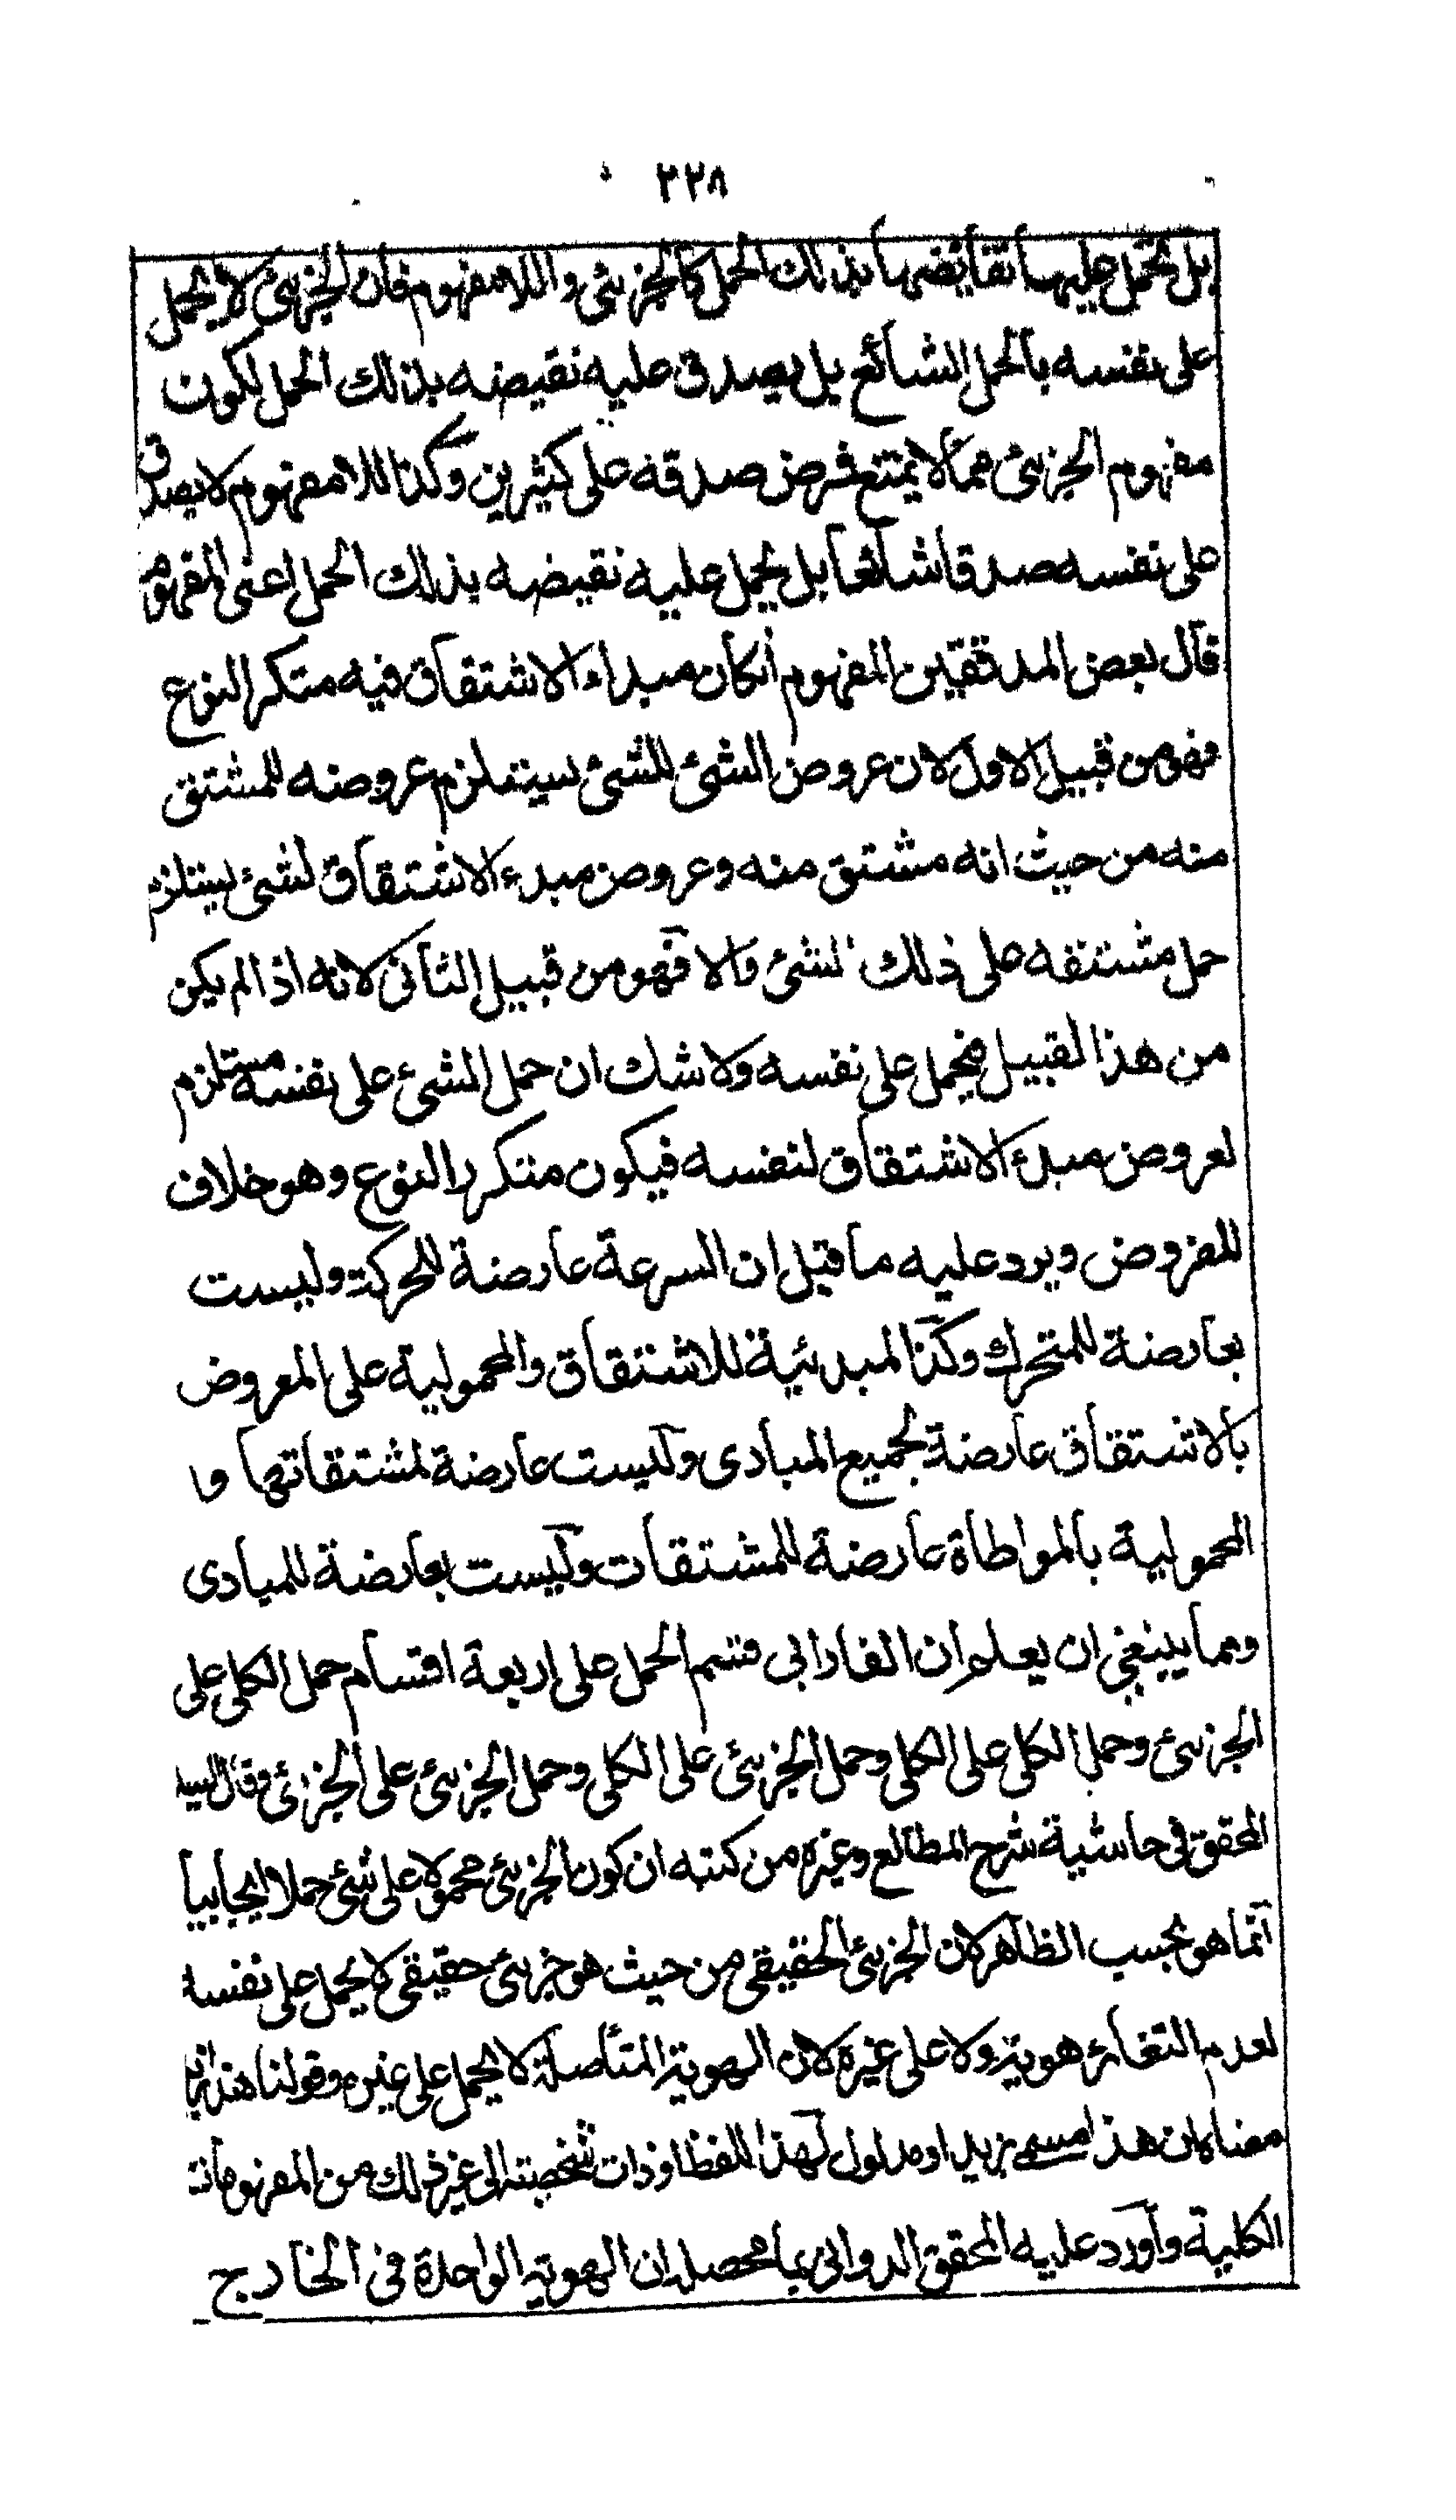 ٢٢٨
بل تحمل عليها نقايضها بذلك الحمل كالجزئي واللامفهوم فان الجزئي لا يحمل
على نفسه بالحمل الشائع بل يصدق عليه نقيضه بذلك الحمل لكون
مفهوم الجزئي مما لا يمتنع فرض صدقه على كثيرين وكذا اللامفهوم لا يصدق
على نفسه صدقا شائعا بل يحمل عليه نقيضه بذلك الحمل اعنى المفهوم
قال بعض المدققين المفهوم انكان مبداء الاشتقاق فيه متكرر النوع
فهو من قبيل الاول لان عروض الشئ للشئ يستلزم عروضه للمشتق
منه من حيث انه مشتق منه وعروض مبدء الاشتقاق لشئ يستلزم
حمل مشتقه على ذلك الشئ والا فهو من قبيل الثانى لانه اذا لم يكن
من هذا القبيل فيحمل على نفسه ولا شك ان حمل الشئ على نفسه مستلزم
لعروض مبدء الاشتقاق لنفسه فيكون متكرر النوع وهو خلاف
المفروض ويرد عليه ما قيل ان السرعة عارضة للحركة وليست
بعارضة للمتحرك وكذا المبدئية للاشتقاق والمحمولية على المعروض
بالاشتقاق عارضة لجميع المبادى وليست عارضة لمشتقاتها وا
المحمولية بالمواطاة عارضة للمشتقات وليست بعارضة للمبادى
ومما ينبغي ان يعلم ان الفارابى قسم الحمل على اربعة اقسام حمل الكلى على
الجزئي وحمل الكلى على الكلى وحمل الجزئي على الكلى وحمل الجزئي على الجزئي وقال السيد
المحقق فى حاشية شرح المطالع وغيره من كتبه ان كون الجزئي محمولا على شئ حملا ايجابيا
انما هو بحسب الظاهر لان الجزئي الحقيقى من حيث هو جزئي حقيقى لا يحمل على نفسه
لعدم التغاير هوية ولا على غيره لان الهوية المتأصلة لا يحمل على غيره وقولنا هذا زيد
معناه ان هذا مسمى بزيد او مدلول لهذا اللفظ او ذات شخصيته الى غير ذلك من المفهومات
الكلية واورد عليه المحقق الدوانى بما محصله ان الهوية الواحدة فى الخارج